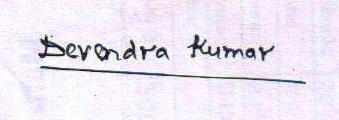 Devendra Kumar